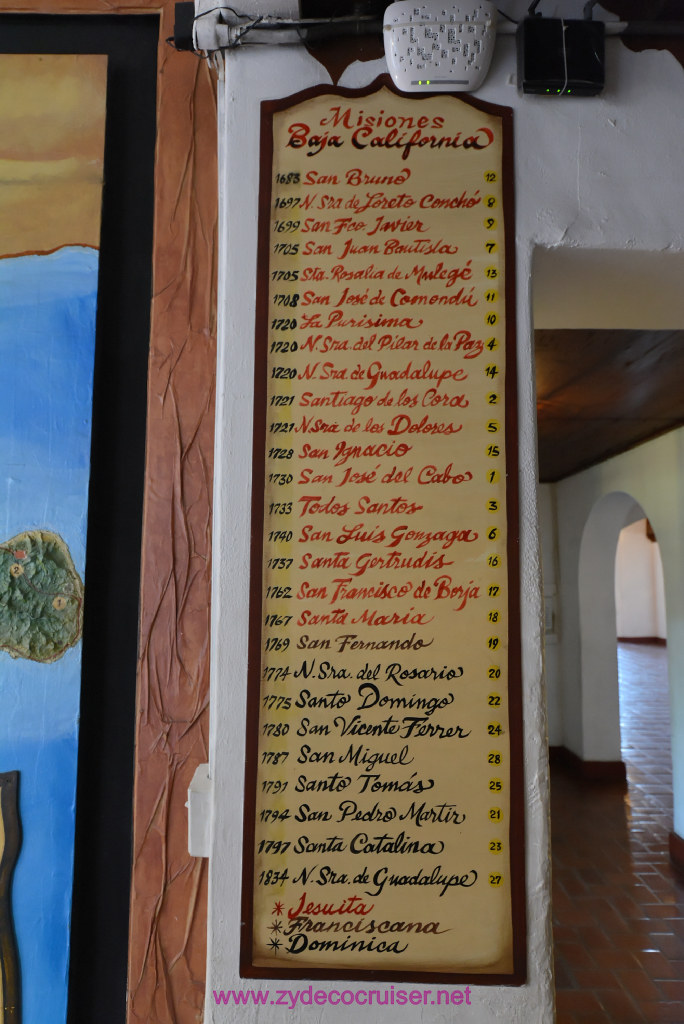 Misiones
Baja California
1683 San Bruno 12
1697 N. Sra de Loreto Conchó 8
1699 San Fco Javier 9
1705 San Juan Bautista 7
1705 Sta. Rosalia de Mulegé 13
1708 San José de Comondú 11
1720 La Purisima 10
1720 N. Sra. del Pilar de la Paz 4
1720 N. Sra. de Guadalupe 14
1721 Santiago de los Cora 2
1721 N. Sra de los Dolores 5
1728 San Ignacio 15
1730 San José del Cabo 1
1733 Todos Santos 3
1740 San Luis Gonzaga 6
1737 Santa Gertrudis 16
1762 San Francisco de Borja 17
1767 Santa Maria 18
1769 San Fernando 19
1774 N. Sra. del Rosario 20
1775 Santo Domingo 22
1780 San Vicente Ferrer 24
1787 San Miguel 28
1791 Santo Tomás 25
1794 San Pedro Martir 21
1797 Santa Catalina 23
1834 N. Sra. de Guadalupe 27
* Jesuita
* Franciscana
* Dominica
2
1
www.zydecocruiser.net